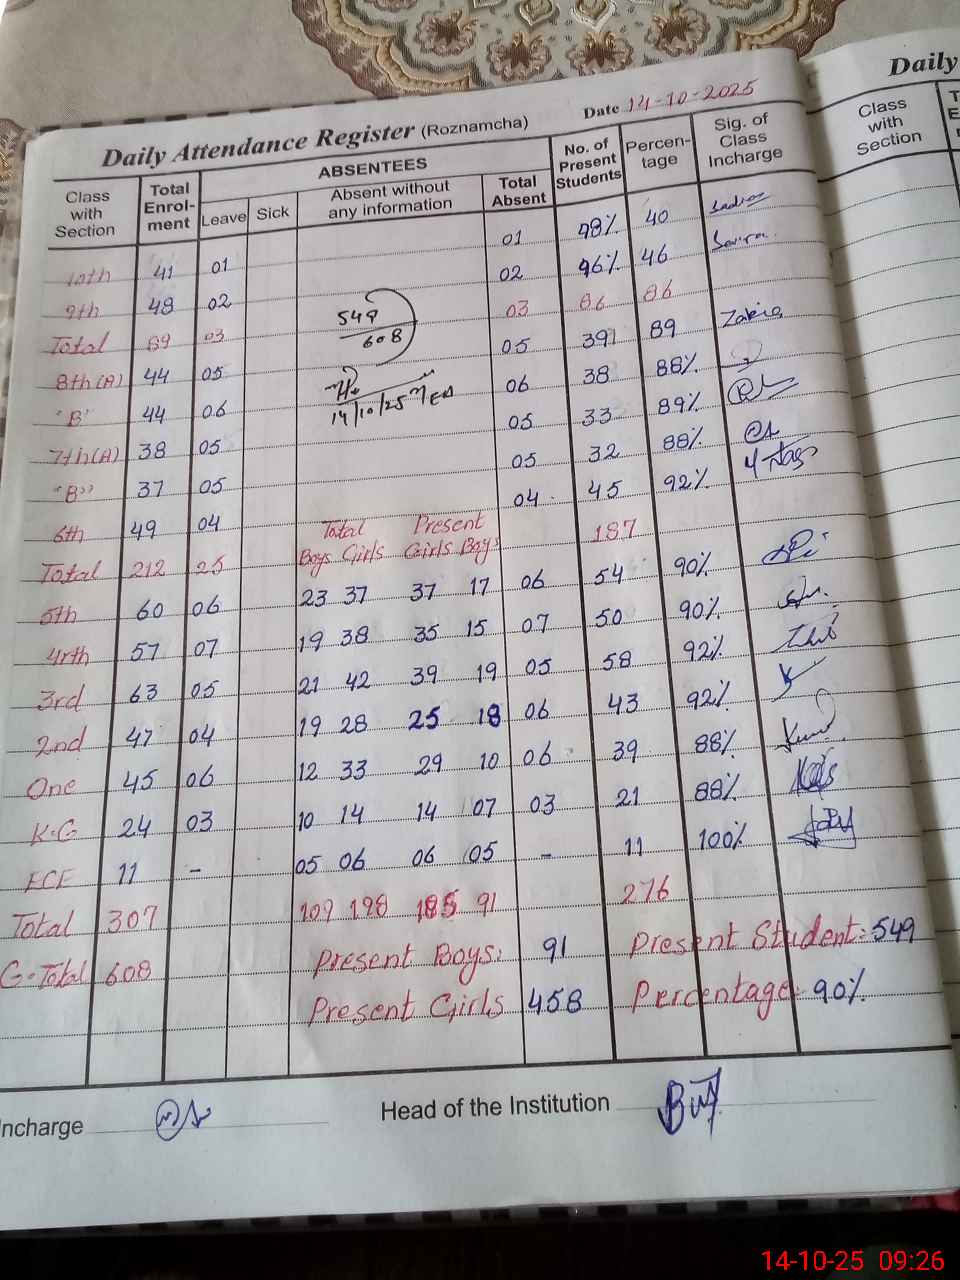 Daily Attendance Register (Roznamcha) Date 14-10-2025
Class with Section Total Enrol-ment ABSENTEES Leave Sick Absent without any information Total Absent No. of Present Students Percen-tage Sig. of Class Incharge
10th 41 01 01 98% 40
9th 48 02 02 96% 46
Total 89 03 03 86 86
8th (A) 44 05 05 39 89 Zakia
"B" 44 06 06 38 88%
7th (A) 38 05 05 33 89%
"B" 37 05 05 32 88%
6th 49 04 04 45 92%
Total 212 25 187
549
608
14/10/25
Total Present
Boys Girls Girls Boys
5th 60 06 23 37 37 17 06 54 90%
4rth 57 07 19 38 35 15 07 50 90%
3rd 63 05 21 42 39 19 05 58 92%
2nd 47 04 19 28 25 18 06 43 92%
One 45 06 12 33 29 10 06 39 88%
K.G 24 03 10 14 14 07 03 21 88%
ECE 11 - 05 06 06 05 - 11 100%
Total 307 109 198 185 91 276
G.Total 608 Present Boys: 91 Present Student: 549
Present Girls 458 Percentage: 90%
Incharge Head of the Institution
Daily
Class with Section
14-10-25 09:26